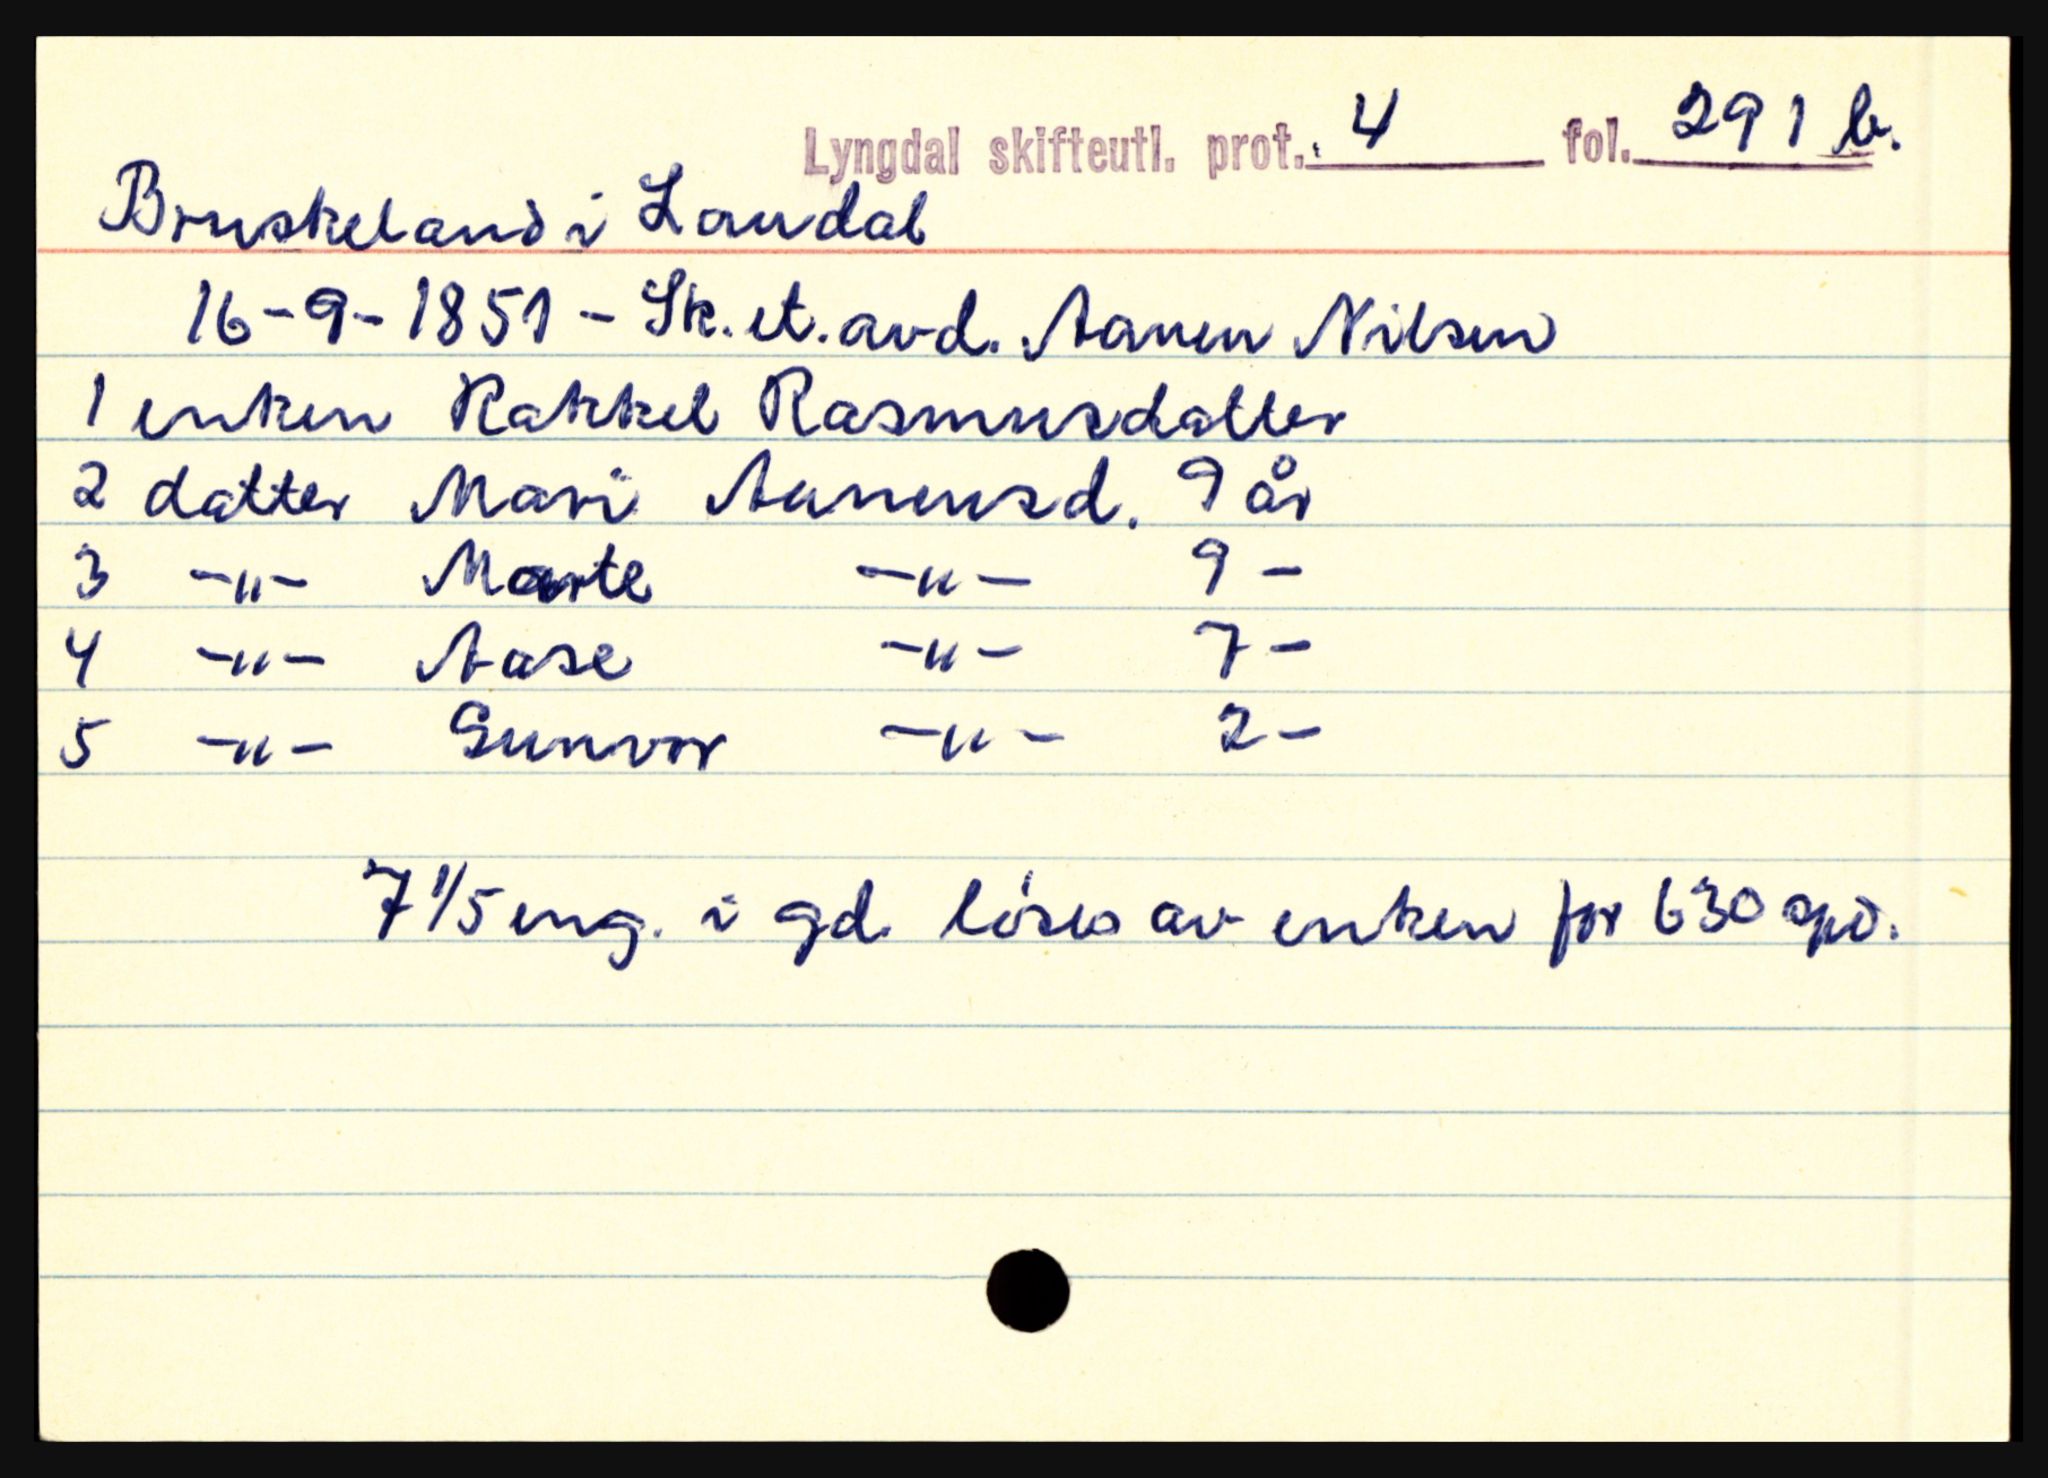 Lyngdal skifteutl. prot. 4 fol. 291 b.
Bruskeland i Laudal
16-9-1851 - Sk. et. avd. Aanen Nilsen
1 enken Rakkel Rasmusdatter
2 datter Mari Aanensd. 9 år
3 -"- Marte -"- 9 -
4 -"- Aase -"- 7 -
5 -"- Gunvor -"- 2 -
7 1/5 eng. i gd. löses av enken for 630 spd.